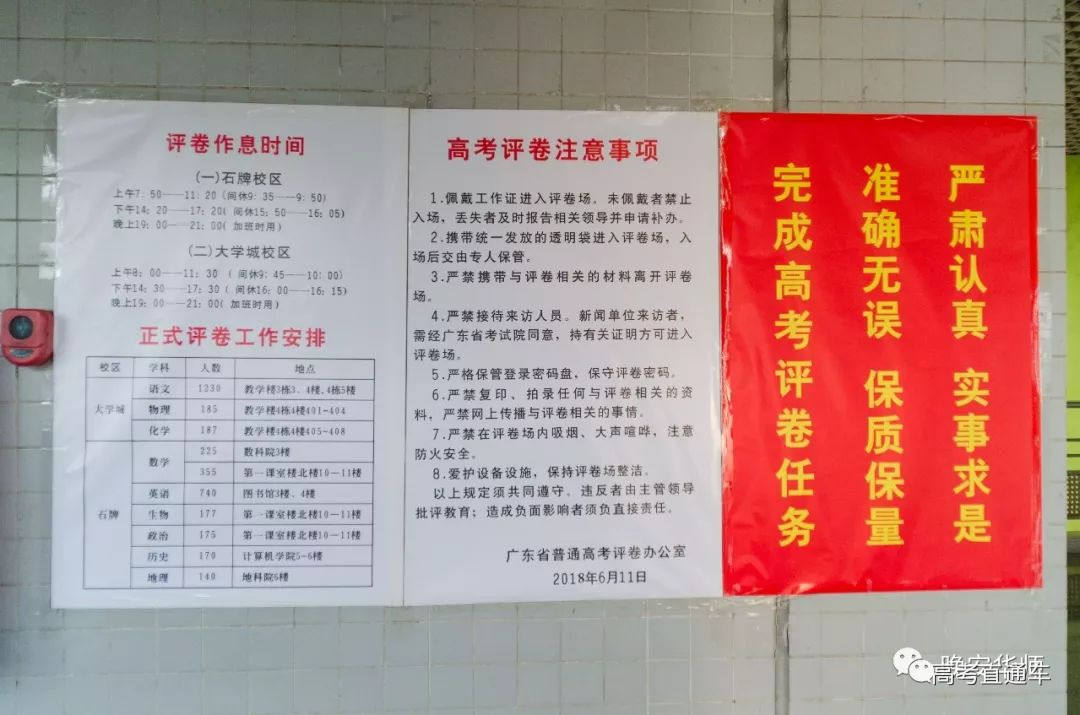 评卷作息时间
(一)石牌校区
上午7：50——11：20(间休9：35——9：50)
下午14：20——17：20( 间休15：50——16：05)
晚上19：00——21：00( 加班时用)
(二)大学城校区
上午8：00——11：30 ( 间休9：45——10：00)
下午14：30——17：30 ( 间休16：00——16：15)
晚上19：00——21：00( 加班时用)
正式评卷工作安排
校区 学科 人数 地点
大学城 语文 1230 教学楼3栋3、4楼,4栋5楼
物理 185 教学楼4栋4楼401-404
化学 187 教学楼4栋4楼405-408
石牌 数学 225 数科院3楼
355 第一课室楼北楼10－11楼
英语 740 图书馆3楼、4楼
生物 177 第一课室楼北楼10－11楼
政治 175 第一课室楼北楼10－11楼
历史 170 计算机学院5-6楼
地理 140 地科院6楼
高考评卷注意事项
1.佩戴工作证进入评卷场。未佩戴者禁止
入场，丢失者及时报告相关领导并申请补办。
2.携带统一发放的透明袋进入评卷场，入
场后交由专人保管。
3.严禁携带与评卷相关的材料离开评卷
场。
4.严禁接待来访人员。新闻单位来访者，
需经广东省考试院同意，持有关证明方可进入
评卷场。
5.严格保管登录密码盘，保守评卷密码。
6.严禁复印、拍录任何与评卷相关的资
料，严禁网上传播与评卷相关的事情。
7.严禁在评卷场内吸烟、大声喧哗，注意
防火安全。
8.爱护设备设施，保持评卷场整洁。
以上规定须共同遵守。违反者由主管领导
批评教育；造成负面影响者须负直接责任。
广东省普通高考评卷办公室
2018年6月11日
严肃认真 实事求是
准确无误 保质保量
完成高考评卷任务
晚安华师
高考直通车